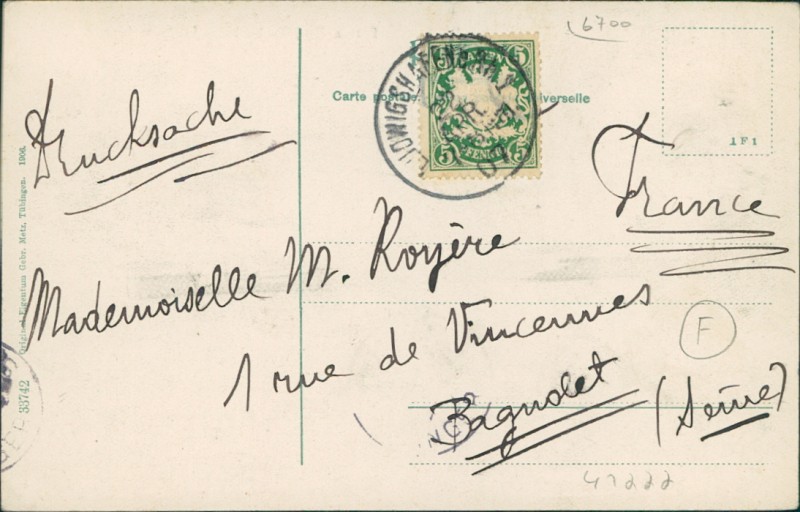 6700
Carte postale universelle
5 5
PFENNIG
5 5
LUDWIGSHAFEN
1 F 1
Drucksache
France
Mademoiselle M. Royère
1 rue de Vincennes
F
Bagnolet (Seine)
41222
Original-Eigentum Gebr. Metz, Tübingen. 1906.
33742